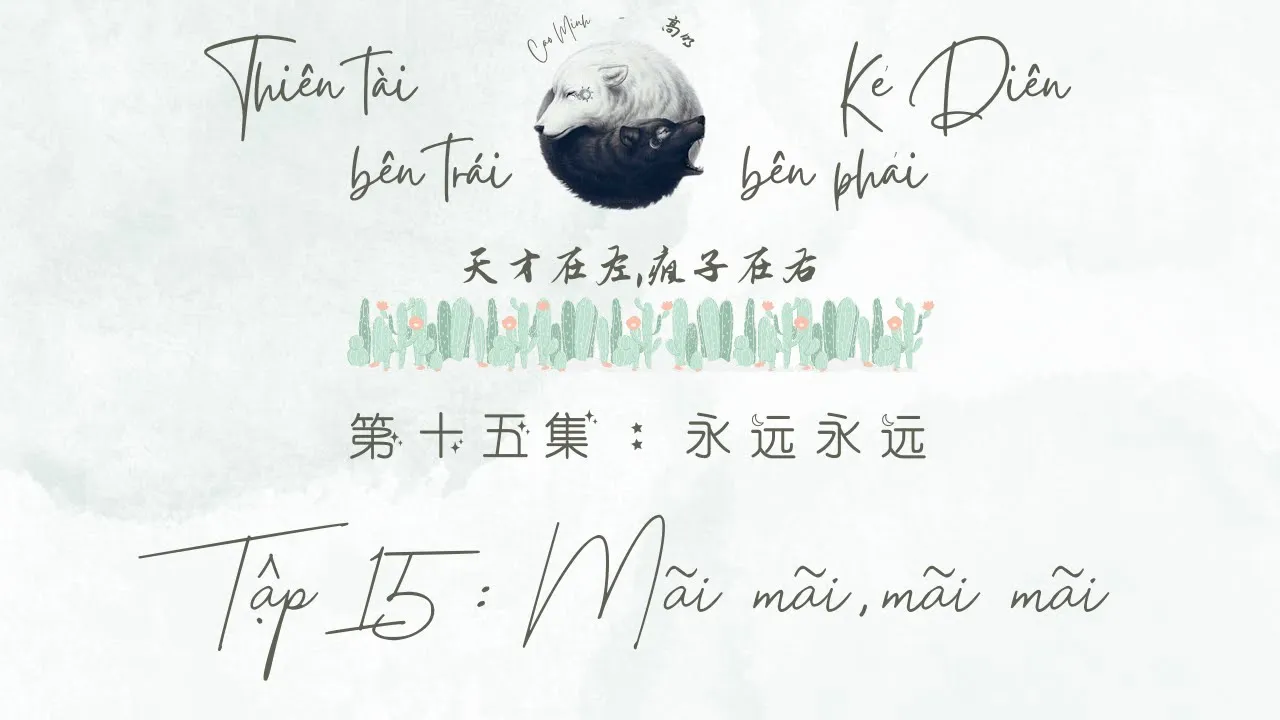 Cao Minh - 高
Thiên tài
bên trái
Kẻ Diên
bên phải
天才在左,疯子在右
第十五集：永远永远
Tập 15: Mãi mãi, mãi mãi